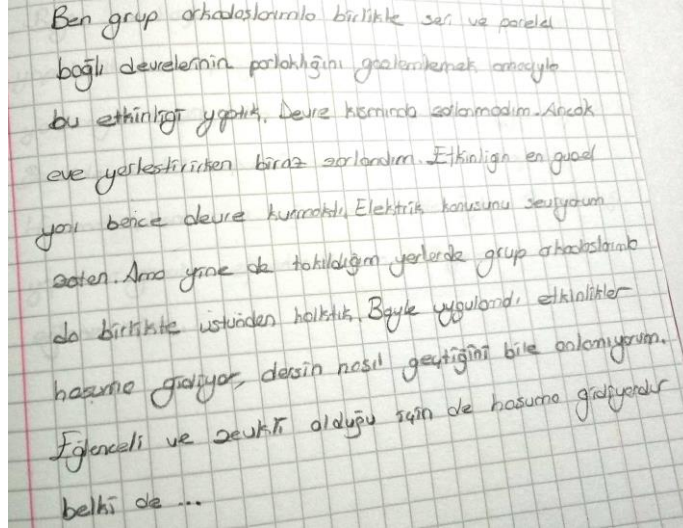 Ben grup arkadaşlarımla birlikte seri ve paralel
bağlı devrelerinin parlaklığını gözlemlemek amacıyla
bu etkinliği yaptık. Devre kısmında zorlanmadım. Ancak
eve yerleştirirken biraz zorlandım. Etkinliğin en güzel
yanı bence devre kurmaktı. Elektrik konusunu seviyorum
zaten. Ama yine de takıldığım yerlerde grup arkadaşlarımla
da birlikte üstünden halktık. Böyle uygulandı etkinlikler
hoşuma gidiyor, dersin nasıl geçtiğini bile anlamıyorum.
Eğlenceli ve zevkli olduğu için de hoşuma gidiyordur
belki de ...